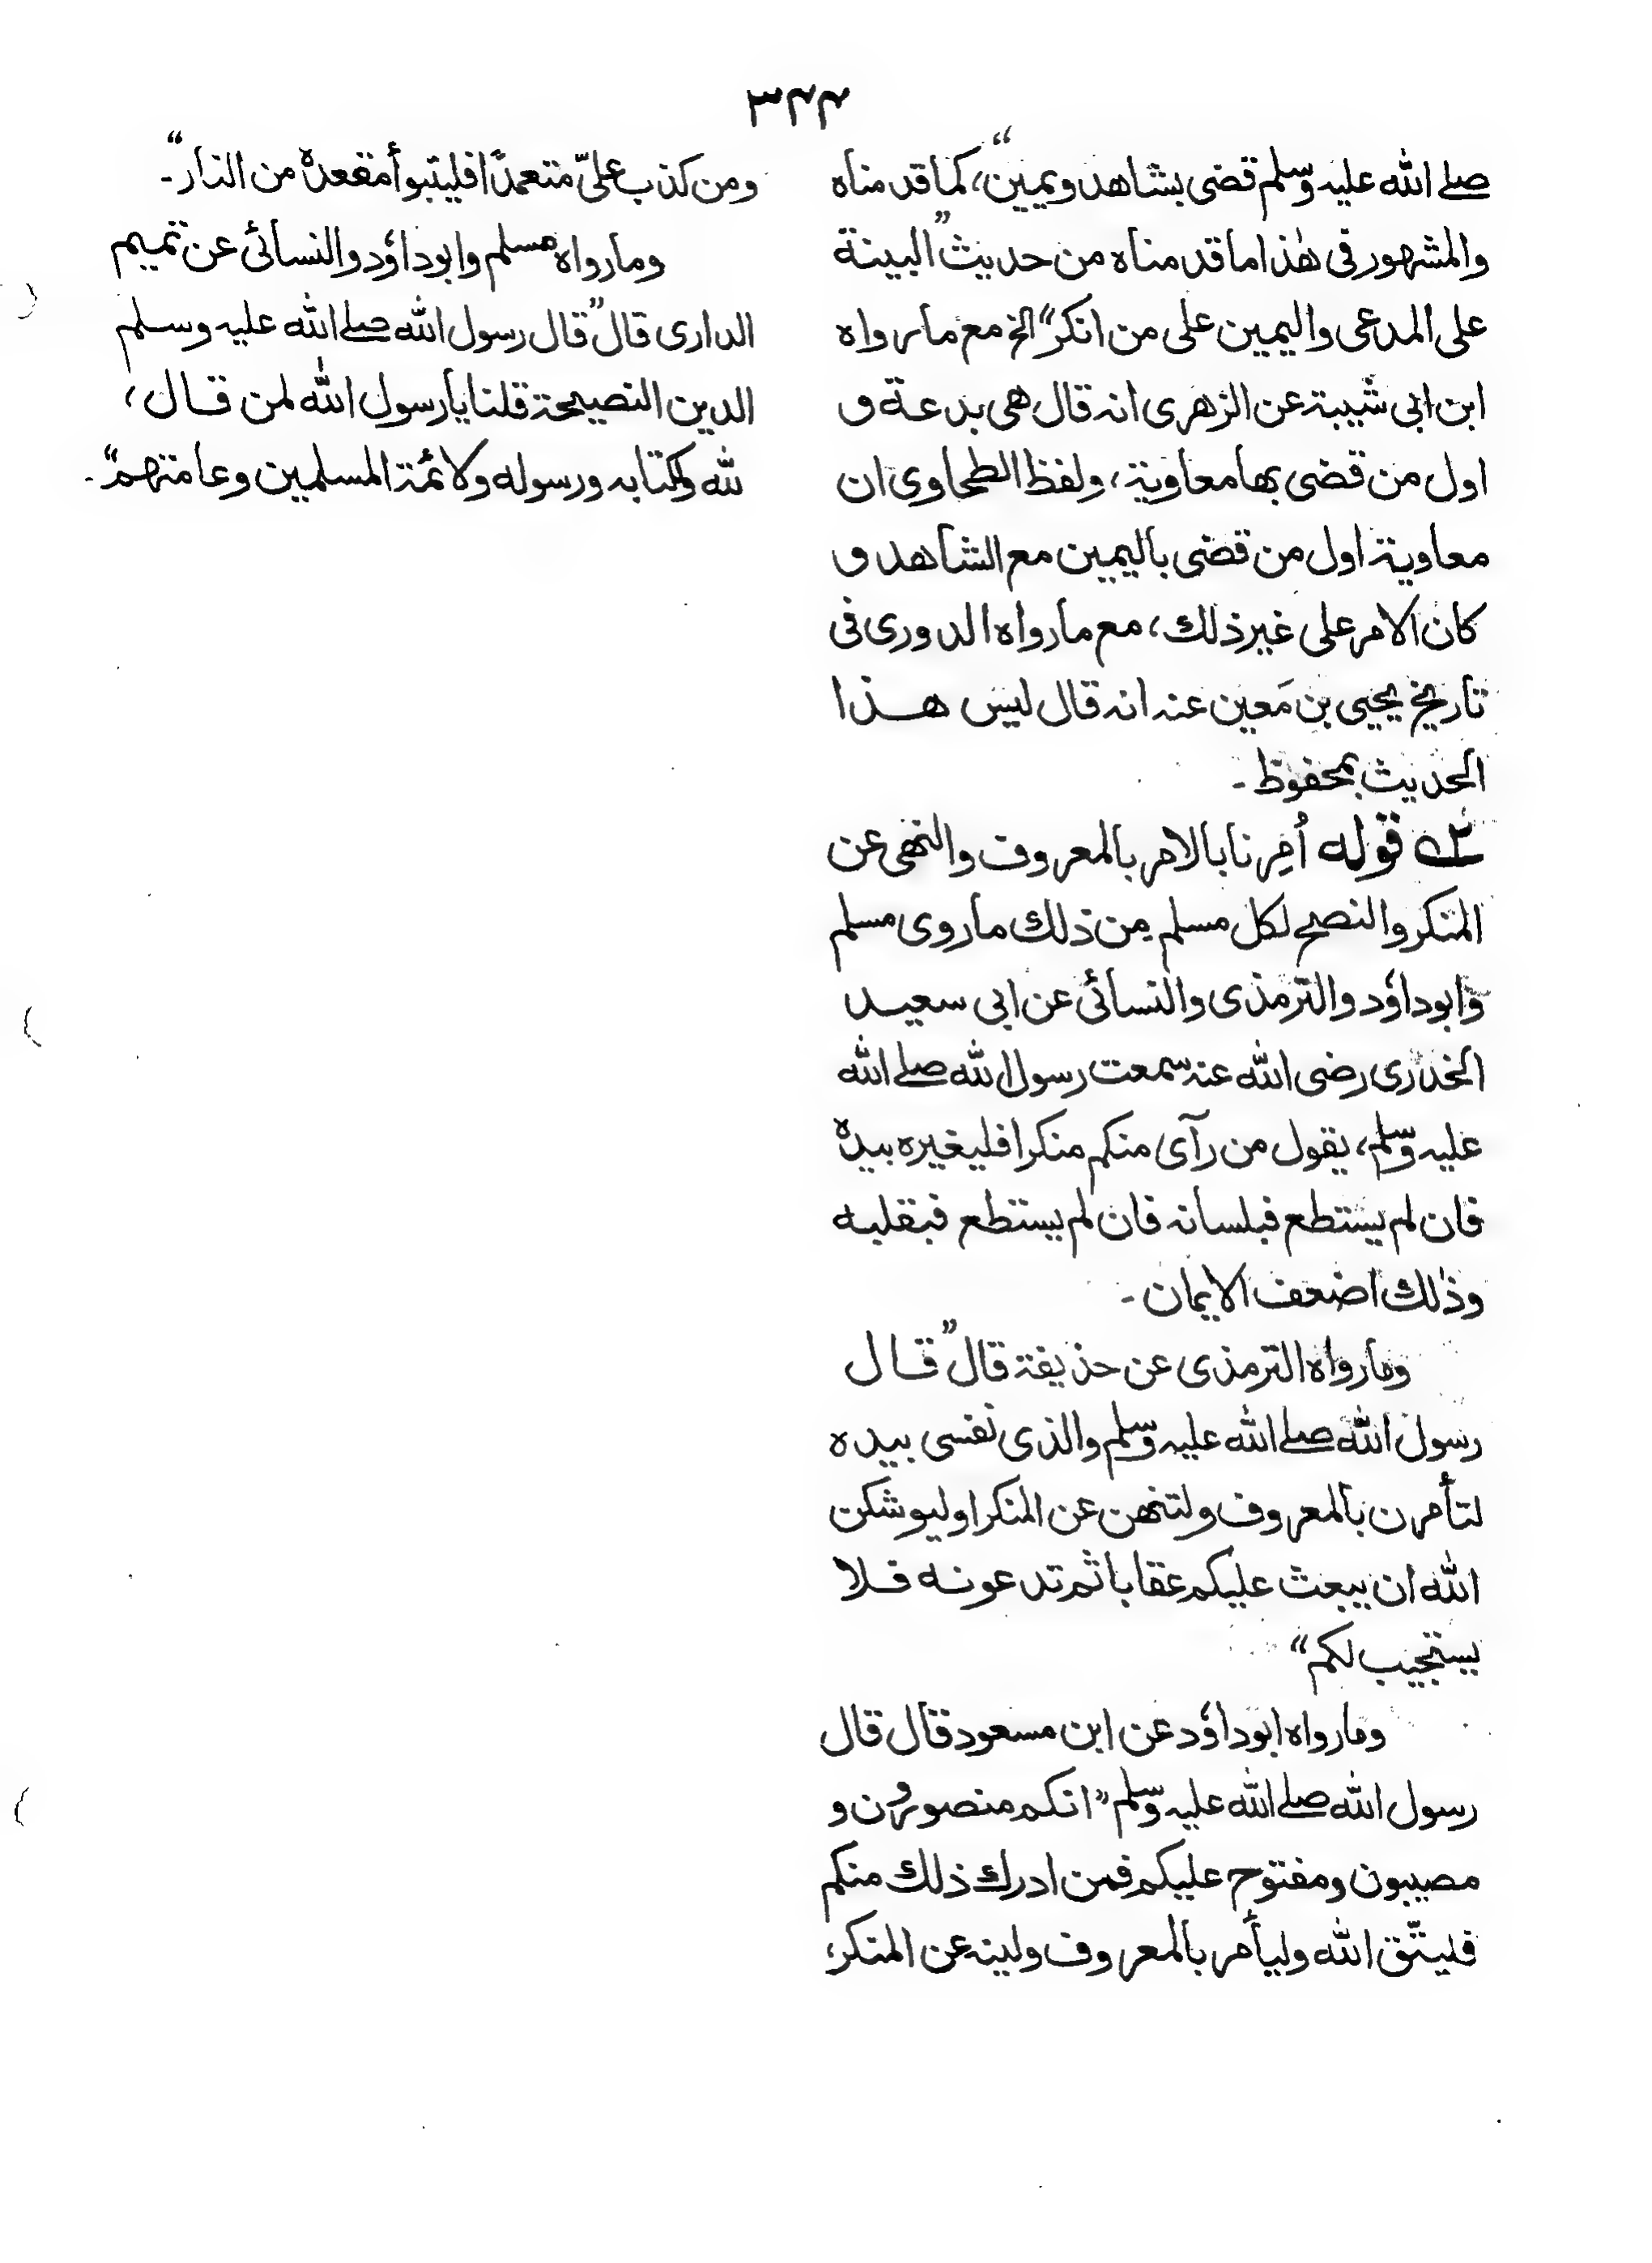 ۳۴۴
صلے اللہ علیہ وسلم قضی بشاھد ویمین“، کما قدمناہ
والمشہور فی ھٰذا ما قدمناہ من حدیث ”البینة
علی المدعی والیمین علی من انکر“ الخ مع ما رواہ
ابن ابی شیبة عن الزھری انہ قال ھی بدعة و
اول من قضی بھا معاویة، ولفظ الطحاوی ان
معاویة اول من قضی بالیمین مع الشاھد و
کان الامر علی غیر ذلك، مع ما رواہ الدوری فی
تاریخ یحیی بن مَعین عنہ انہ قال لیس ھـــذا
الحدیث بمحفوظ۔
۲ے قولہ اُمِرنا بالامر بالمعروف والنھی عن
المنکر والنصح لکل مسلم مِن ذلك ما روی مسلم
وابوداؤد والترمذی والنسائی عن ابی سعیــد
الخدری رضی اللہ عنہ سمعت رسول اللہ صلے اللہ
علیہ وسلم، یقول من رآی منکم منکرا فلیغیرہ بیدہ
فان لم یستطع فبلسانہ فان لم یستطع فبقلبہ
وذٰلك اضعف الایمان۔
وما رواہ الترمذی عن حذیفة قال ”قـــال
رسول اللہ صلے اللہ علیہ وسلم والذی نفسی بیدہ
لتأمرن بالمعروف ولتنھن عن المنکر او لیوشکن
اللہ ان یبعث علیکم عقابا ثم تدعونہ فــلا
یستجیب لکم“
وما رواہ ابوداؤد عن ابن مسعود قال قال
رسول اللہ صلے اللہ علیہ وسلم ”انکم منصورون و
مصیبون ومفتوح علیکم فمن ادرك ذلك منکم
فلیتّق اللہ ولیأمر بالمعروف ولینہ عن المنکر،
ومن کذب علیّ متعمدًا فلیتبوأ مقعدہ من النار“۔
وما رواہ مسلم وابوداؤد والنسائی عن تمیم
الداری قال ”قال رسول اللہ صلے اللہ علیہ وسلم
الدین النصیحة قلنا یا رسول اللہ لمن قــال،
للہ ولکتابہ ورسولہ ولائمة المسلمین وعامتھم“۔